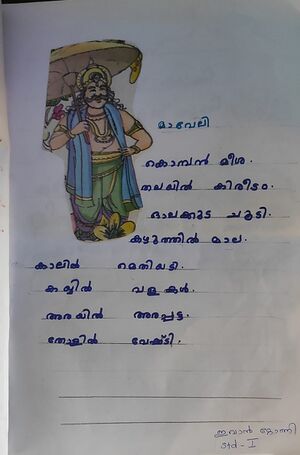 മാവേലി
കൊമ്പൻ മീശ.
തലയിൽ കിരീടം.
ഓലക്കുട ചൂടി.
കഴുത്തിൽ മാല.
കാലിൽ മെതിയടി.
കയ്യിൽ വളകൾ.
അരയിൽ അരപ്പട്ട.
തോളിൽ വേഷ്ടി.
ഇവാൻ ജോണി
Std - I